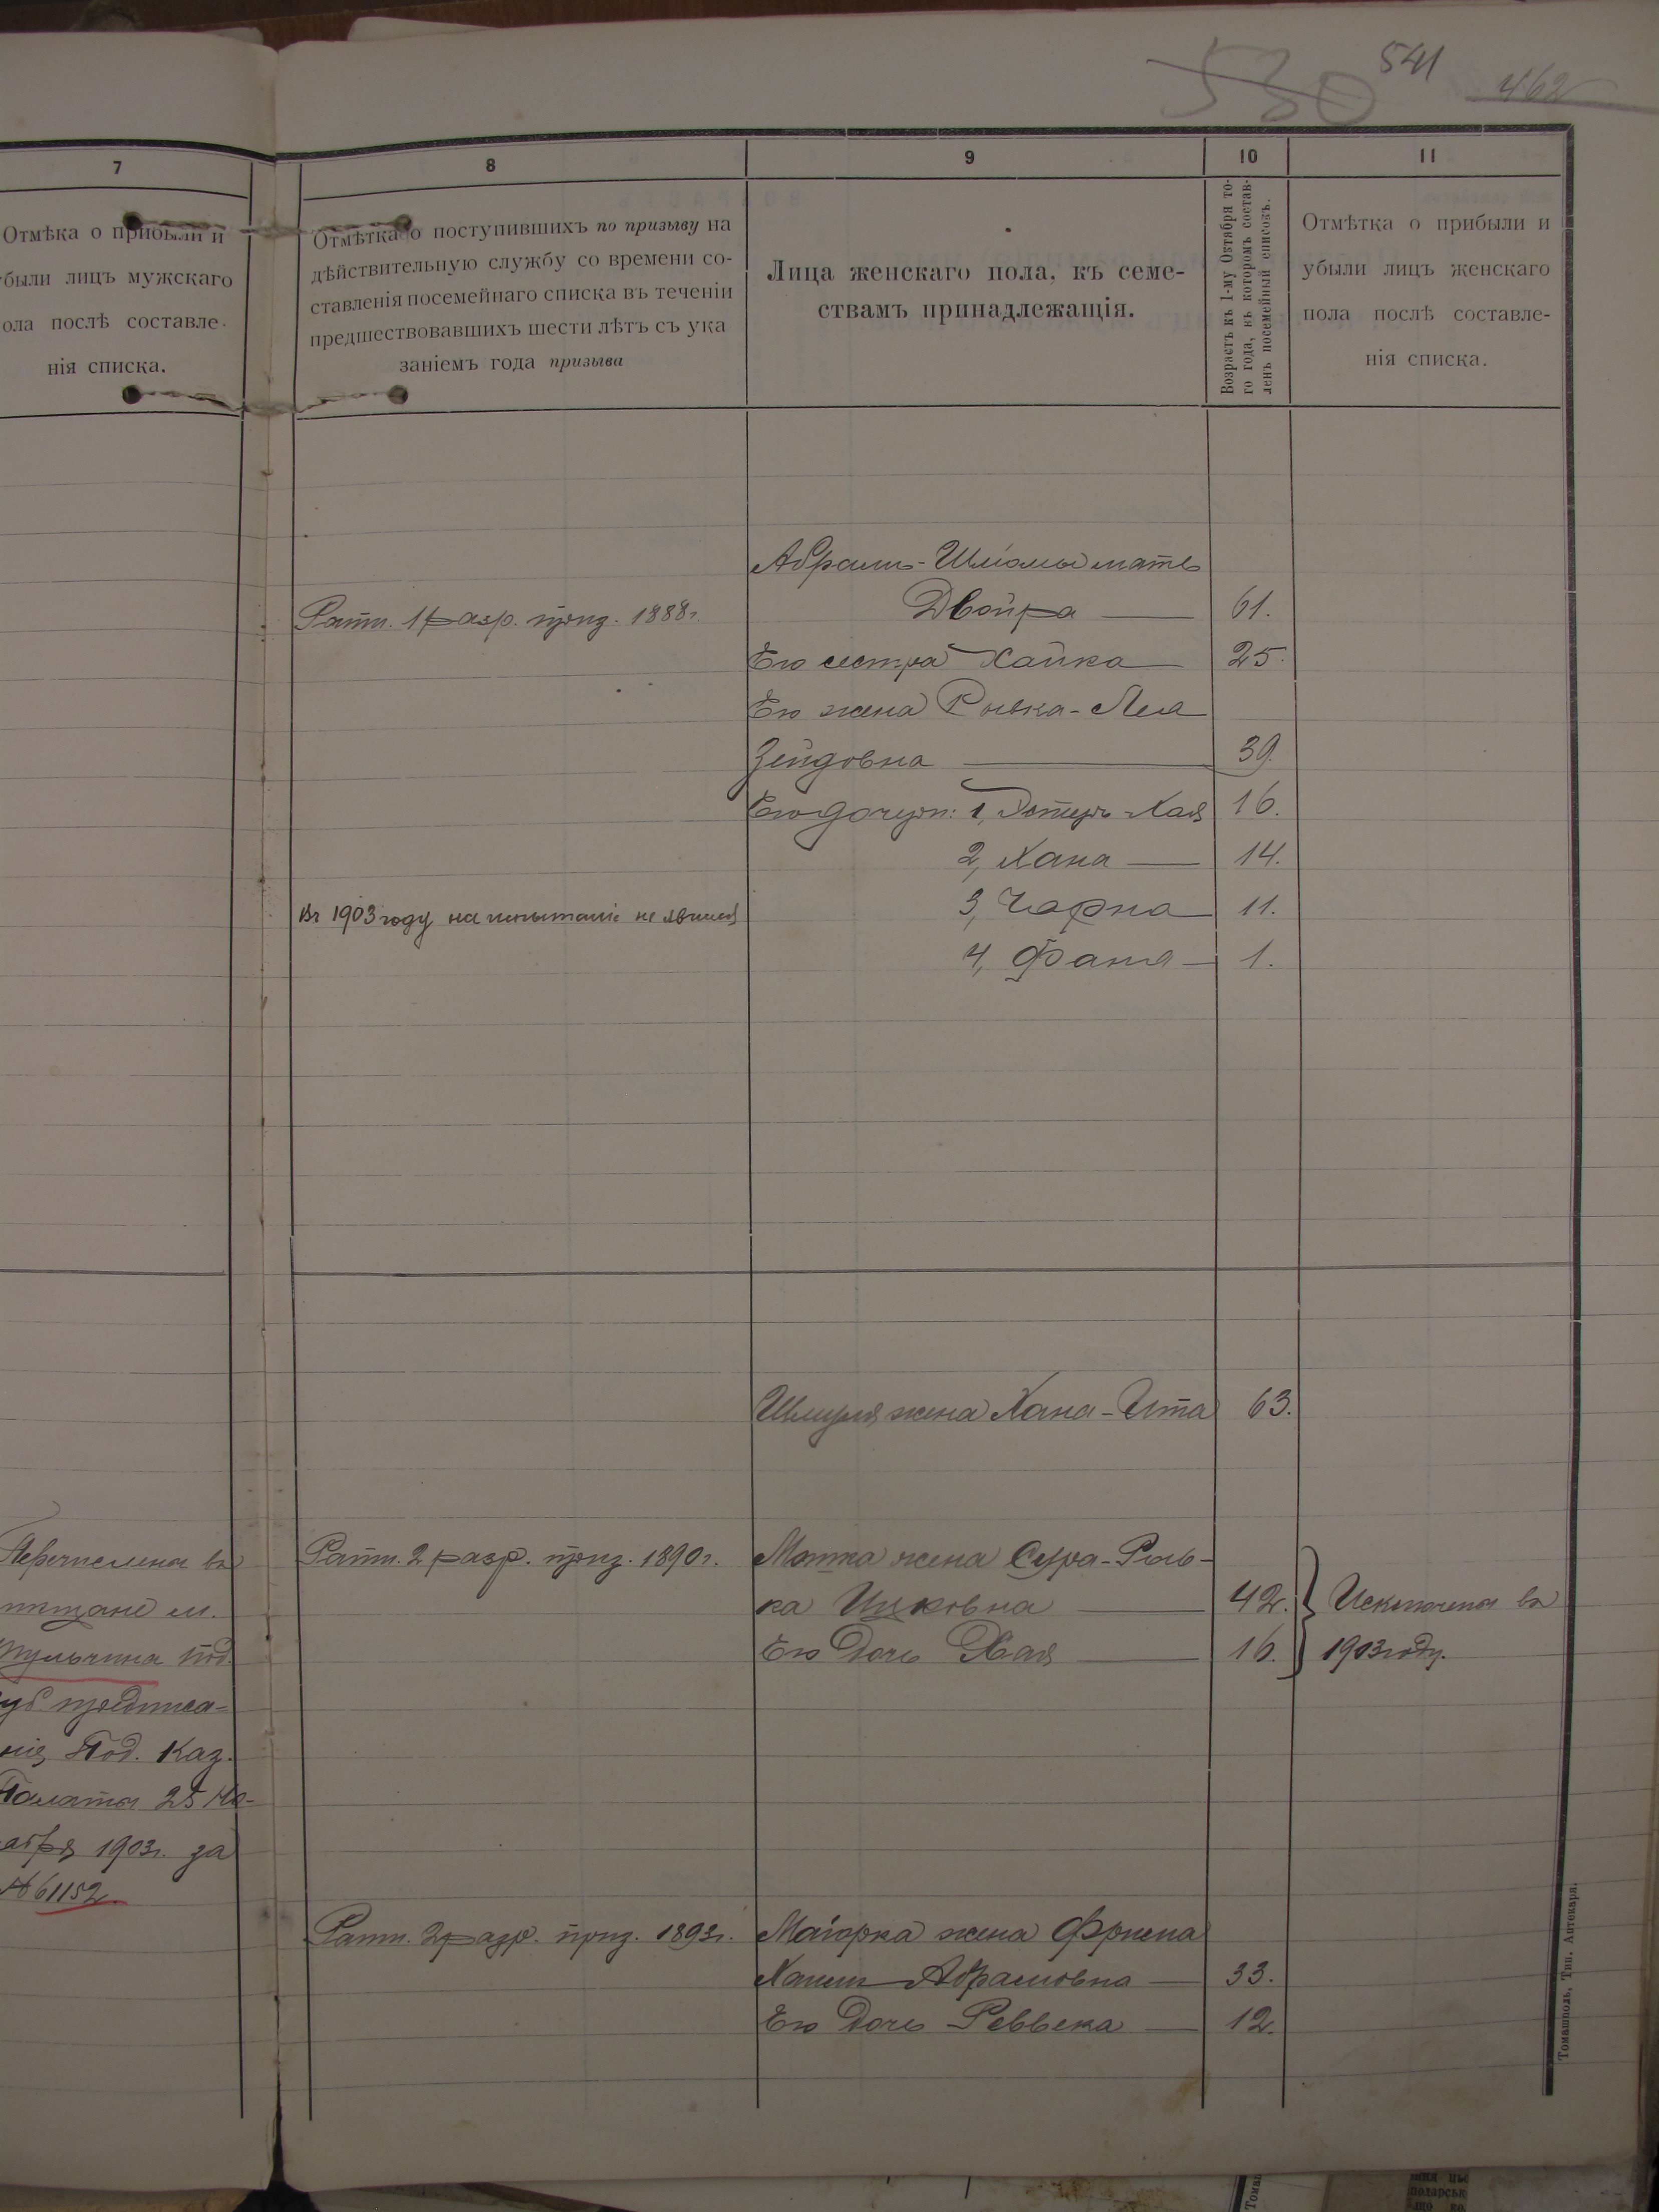 530 541 462
7
8
9
10
11
Отмѣка о прибыли и
были лицъ мужскаго
ола послѣ составле-
нія списка.
Отмѣтка о поступившихъ по призыву на
дѣйствительную службу со времени со-
ставленія посемейнаго списка въ теченіи
предшествовавшихъ шести лѣтъ съ ука
заніемъ года призыва
Лица женскаго пола, къ семе-
ствамъ принадлежащія.
Возрастъ къ 1-му Октября то-
го года, въ которомъ состав-
ленъ посемейный списокъ.
Отмѣтка о прибыли и
убыли лицъ женскаго
пола послѣ составле-
нія списка.
Абрамъ-Шлiомы мать
Ратн. 1 разр. приз. 1888 г.
Двойра 61.
Его сестра Хайка 25.
Его жена Ривка-Лея
Зейдовна 39.
Его дочери: 1, Эстеръ-Хая 16.
2, Хана 14.
Въ 1903 году на испытаніе не явился
3, Чарна 11.
4, Фаня 1.
Шмуля жена Хана-Ита 63.
Перечислены въ
мѣщане м.
Тульчина Под.
губ. предписа-
ніе Под. Каз.
Палаты 25 Но-
ября 1903 г. за
№ 61152.
Ратн. 2 разр. приз. 1890 г.
Мотка жена Сура-Рыв-
ка Ицковна 42.
Его дочь Хая 16.
Исключены въ
1903 году.
Ратн. 2 разр. приз. 1893 г.
Маіорка жена Фрима
Ханя Абрамовна 33.
Его дочь Реввека 12.
Томашполь, Тип. Аптекаря.